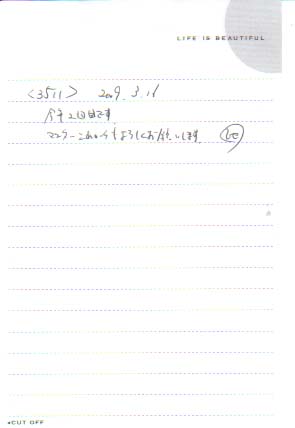 LIFE IS BEAUTIFUL
<3511> 2009.3.11
今年2回目です
マスターこれからもよろしくお願いします
CUT OFF